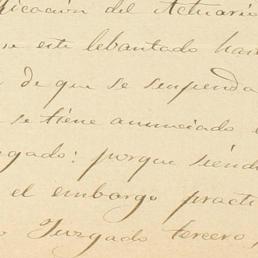 ficación del Actuario
se esté lebantado has
de que se suspenda
se tiene anunciado e
gado: porque siend
el embargo practi
o Juzgado tercero,